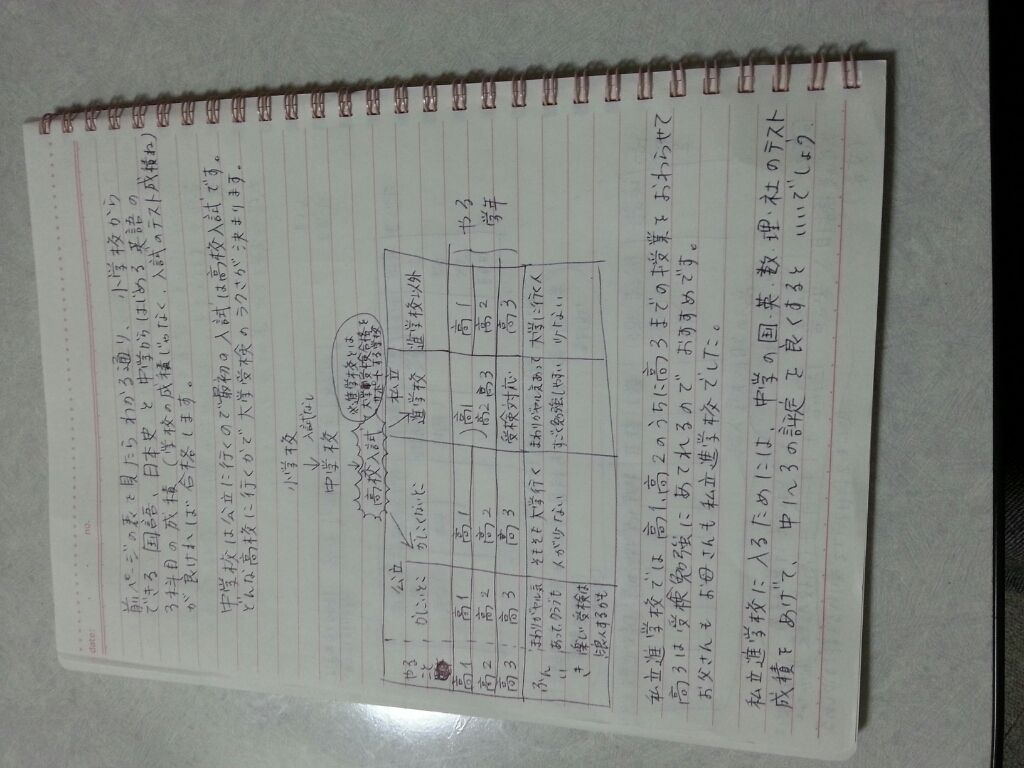 date:
no.
前ページの表を見たらわかる通り、小学校から
できる国語、日本史と中学からはじめる英語の
3科目の成績(学校の成績じゃなく、入試のテスト成績ね)
が良ければ合格します。
中学校は公立に行くので最初の入試は高校入試です。
どんな高校に行くかで大学受検のラクさが決まります。
小学校
↓入試なし
中学校
高校入試
※進学校とは
大学受検合格を
サポートする学校
公立
私立
やる
こと
かしこいとこ
かしこくないとこ
進学校
進学校以外
高1
高1
高1
高1
高2 高3
高1
やる
学年
高2
高2
高2
高2
高3
高3
高3
受検対応
高3
ふんいき
まわりがヤル気
あってクラスも
楽しい 受検は
浪人するかも
そもそも大学行く
人が少ない
まわりがヤル気あって
すごく勉強しやすい
大学に行く人
少ない
私立進学校では高1、高2のうちに高3までの授業をおわらせて
高3は受検勉強にあてれるのでおすすめです。
お父さんもお母さんも私立進学校でした。
私立進学校に入るためには、中学の国・英・数・理・社のテスト
成績をあげて、中1〜3の評定を良くするといいでしょう